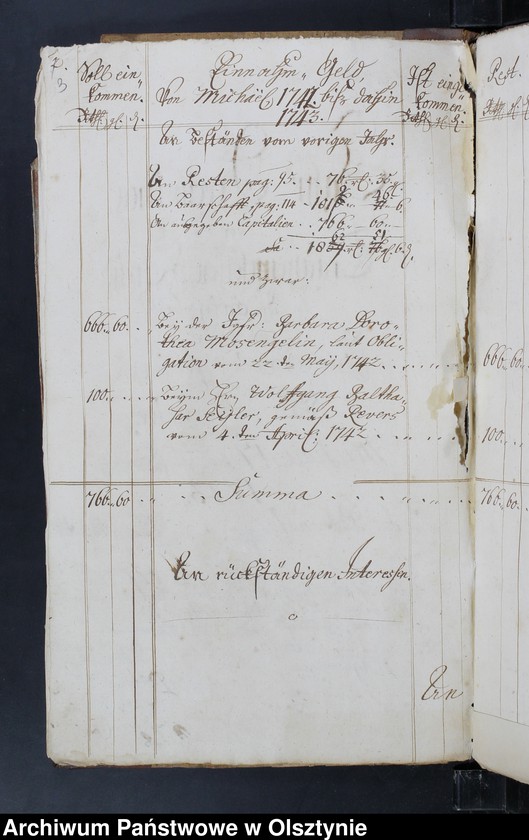 p. 3
Soll ein-
kommen.
Rthl. gl. d.
Einnahm-Geld,
Von Michael 1741. biß dahin
1743.
Ist eingek-
kommen.
Rthl. gl. d.
Rest.
Rthl. gl. d.
An Beständen vom vorigen Jahr.
An Resten pag: 95.
An Baarschafft, pag: 114
An außgegeben Capitalien .. 766 .. 60 ..
und zwar:
666. 60. Bey der Jgfr: Barbara Doro-
thea Mosengelin, laut Obli-
gation vom 22 ten May, 1742. 666. 60.
100. Beym Hrn. Wolffgang Baltha-
sar Seidler, gemäß Revers
vom 4. ten April: 1742. 100.
766. 60 Summa 766. 60.
An rückständigen Interessen.
o
An
Archiwum Państwowe w Olsztynie